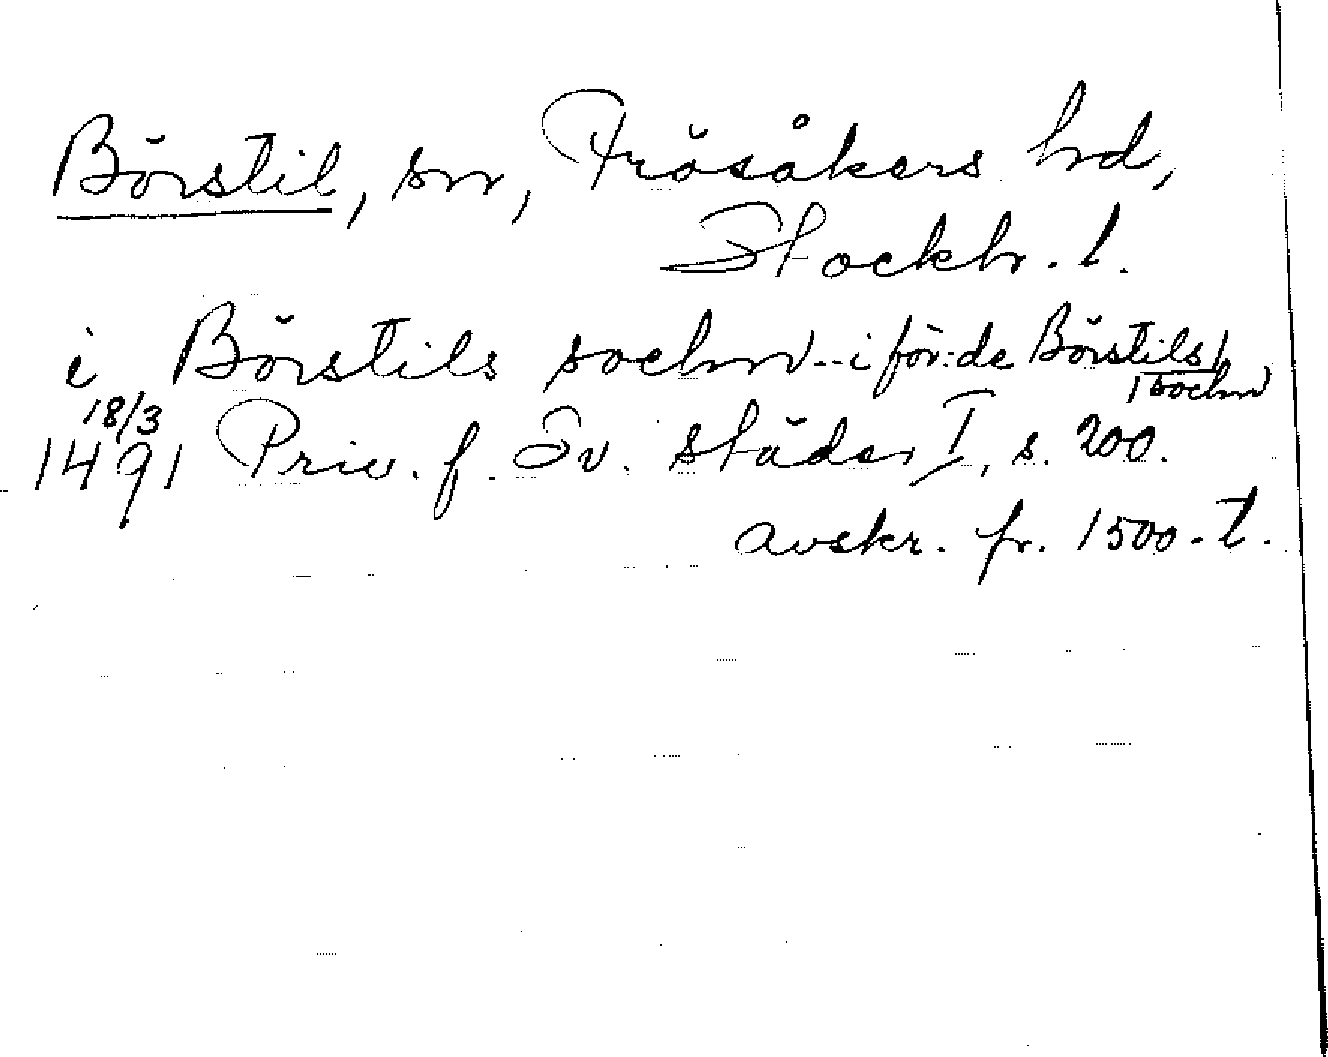 Börstil, sn, Frösåkers hd,
Stockh. l.
i Börstils sochn - i för:de Börstils /
/ sochn
18/3
1491 Priv. f. Sv. städer I, s. 200.
avskr. fr. 1500-t.